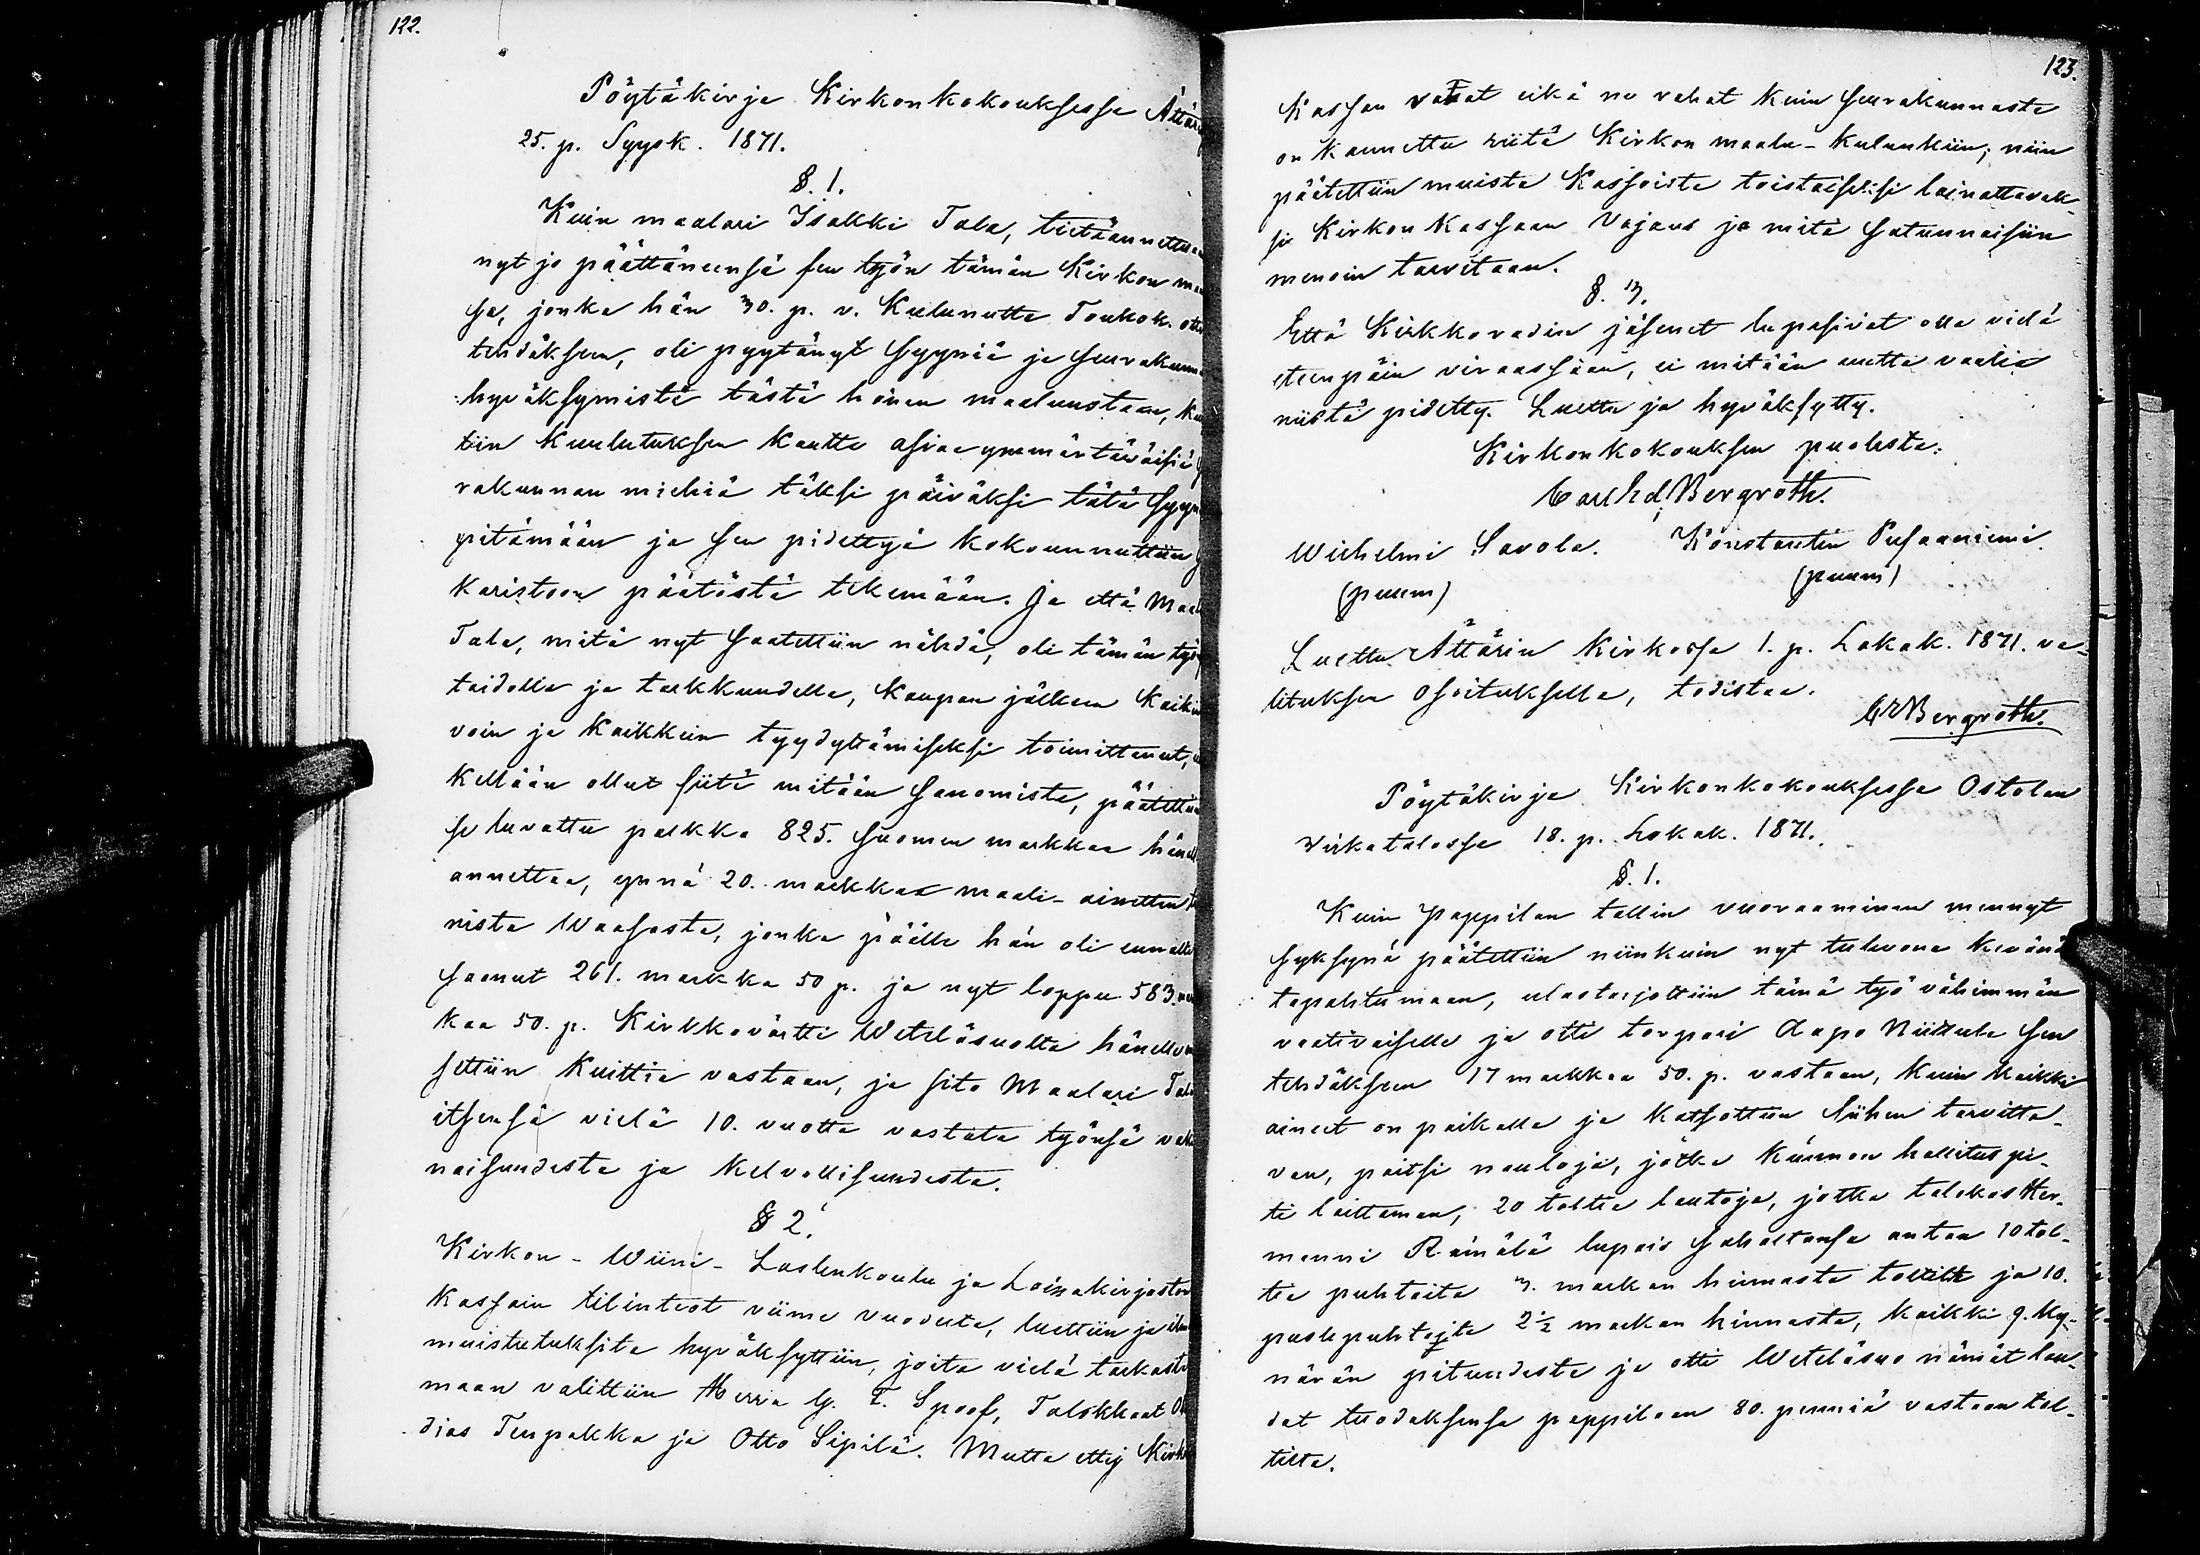 122.
Pöytäkirja Kirkonkokouksessa Ättär
25. p. Syysk. 1871.
§. 1.
Kuin maalari Isakki Tala, tietäännettuan
nyt jo päättäneensä sen työn tämän Kirkon maa
sa, jonka hän 30. p. v. Kulunutta Toukok. otti
tehdäksen, oli pyytänyt Syyniä ja seurakunn
hyväksymistä tästä hänen maalustaan, Ku
tiin Kuulutuksen kautta asiaa ymmärtäväisiä
rakunnan miehiä täksi päiväksi tätä Syyn
pitämään ja sen pidettyä kokounnuttiin
Karistoon päätöstä tekemään. Ja että Maal
Tala, mitä nyt saatettiin nähdä, oli tämän työn
taidolla ja tarkkuudella, kaupan jälkeen kaikin
voin ja kaikkiin tyydyttämiseksi toimittanut,
kellään ollut siitä mitään sanomista, päätettiin
se luvattu palkka 825. Suomen markkaa hänell
annettaa, ynnä 20. markkaa maali-ainetten
nista Waasasta, jonka päälle hän oli ennalta
saanut 261. markka 50 p. ja nyt loppu 583. mar
kaa 50. p. Kirkkovärtti Weteläsuolta hänelle
settiin Kuittia vastaan, ja sito Maalari Tala
itsensä vielä 10. vuotta vastata työnsä vaki
naisuudesta ja Kelvollisuudesta.
§ 2.
Kirkon-Wiini-Lastenkoulu ja Lainakirjaston
Kassain tilinteot viime vuodelta, luettiin ja ilm
muistutuksita hyväksyttiin, joita vielä tarkastu
maan valittiin Herra G. T. Spoof, Talokkaat O
dias Tenpakka ja Otto Sipilä. Mutta ettij Kirk
123.
Kassan varat eikä ne rahat kuin seurakunnasta
on kannettu riitä Kirkon maalu-kulunkiin, niin
päätettiin muista Kassoista toistaiseksi lainattavak-
si Kirkon Kassaan Vajaus ja mitä satunnaisiin
menoin tarvitaan.
§. 3.
Että Kirkkoradin jäsenet lupasivat olla vielä
eteenpäin virassaan, ei mitään uutta vaalia
niistä pidetty. Luettu ja hyväksytty.
Kirkonkokouksen puolesta:
Carl Ed. Bergroth.
Wilhelmi Savola. Konstantin Pusaaniemi
(puum) (puum)
Luettu Ättärin Kirkossa 1. p. Lokak. 1871. va-
lituksen osoituksella, todistaa.
CEBergroth.
Pöytäkirja Kirkonkokouksessa Ostolan
Virkatalossa 18. p. Lokak. 1871.
§. 1.
Kuin Pappilan tallin vuoraaminen mennyt
syksynä päätettiin niinkuin nyt tulevana Kevänä
tapahtumaan, ulostarjottiin tämä työ vähimmän
vaativaiselle ja otti torpari Aapo Niittula sen
tehdäksen 17 markkaa 50. p. vastaan, kuin kaikki
aineet on paikalla ja katsottiin siihen tarvitta-
van, paitsi nauloja, jotka Kunnan hallitus pi-
ti laittaman, 20 tolttia lautoja, jotka talokas Her-
manni Rämälä lupais sahastansa antaa 10 tol-
tia puhtaita 3. markan hinnasta toltilta ja 10.
puolipuhtajta 2½ markan hinnasta, kaikki 9. ky-
närän pituudesta ja otti Weteläsuo nämät lau-
dat tuodaksensa pappilaan 80. penniä vastaan tol-
tilta.